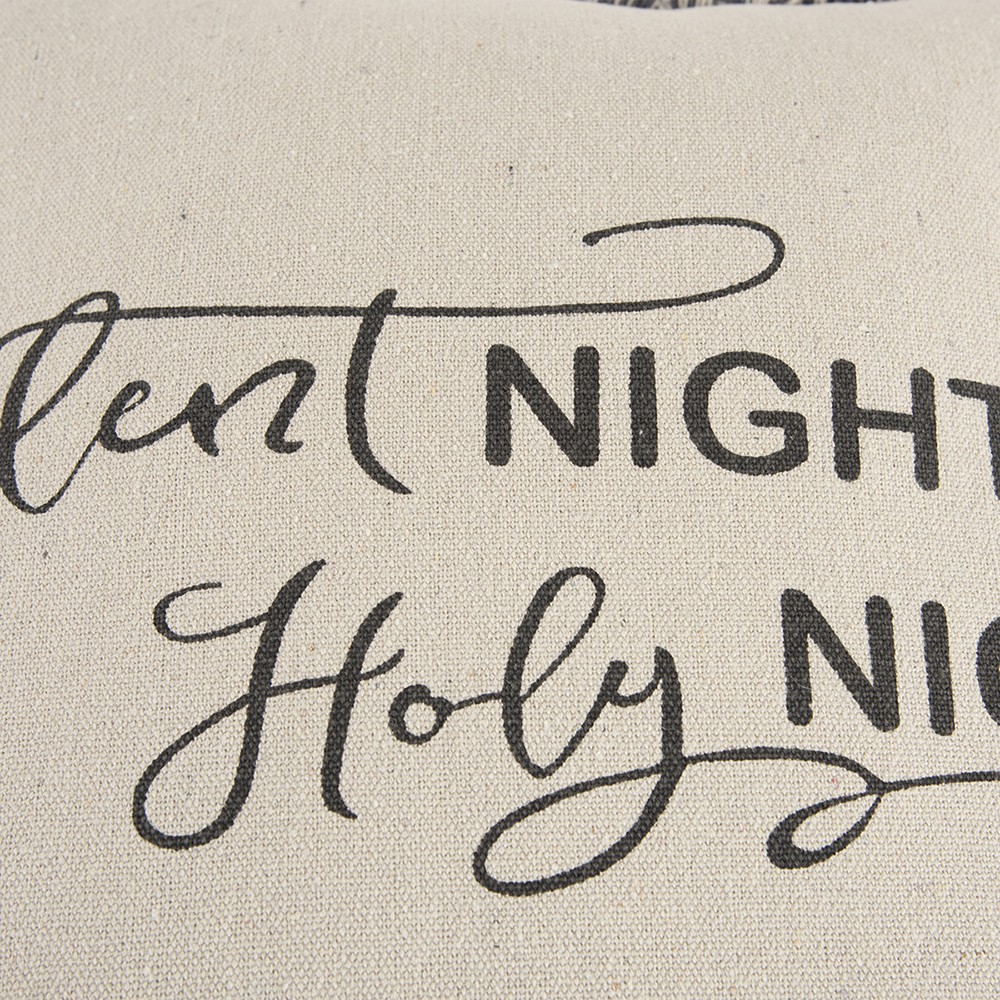 lent NIGHT
Holy NIG